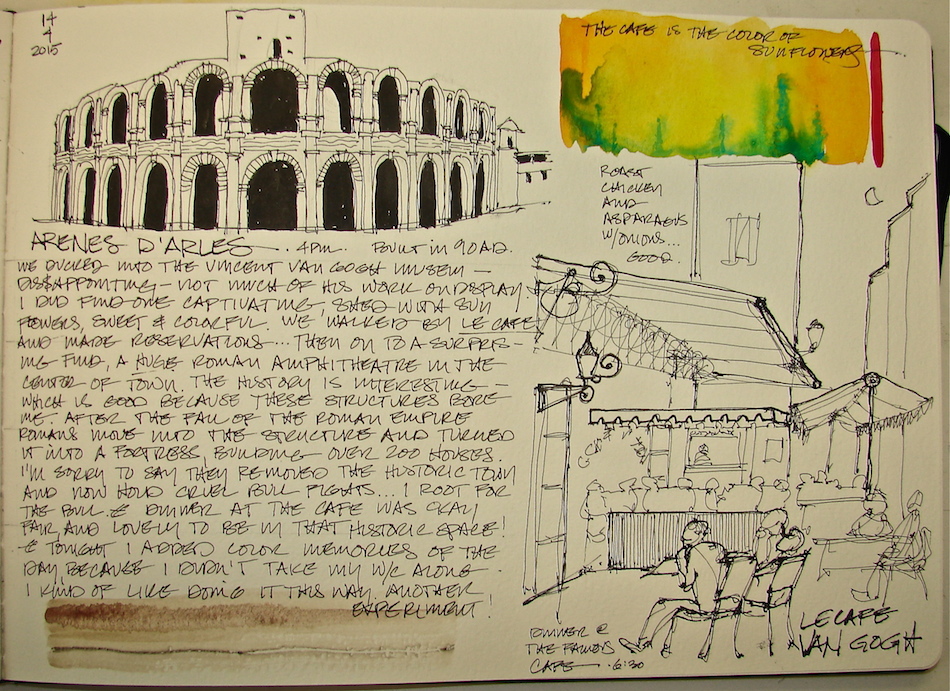 14
4
2015
THE CAFE IS THE COLOR OF
SUNFLOWERS
ROAST
CHICKEN
AND
ASPARAGUS
W/ONIONS...
GOOD.
ARENES D'ARLES - 4PM. BUILT IN 90 AD.
WE DUCKED INTO THE VINCENT VAN GOGH MUSEUM -
DISSAPPOINTING - NOT MUCH OF HIS WORK ON DISPLAY.
I DID FIND ONE CAPTIVATING, SHED WITH SUN
FLOWERS, SWEET & COLORFUL. WE WALKED BY LE CAFE,
AND MADE RESERVATIONS... THEN ON TO A SURPRIS-
ING FIND, A HUGE ROMAN AMPHITHEATRE IN THE
CENTER OF TOWN. THE HISTORY IS INTERESTING -
WHICH IS GOOD BECAUSE THESE STRUCTURES BORE
ME. AFTER THE FALL OF THE ROMAN EMPIRE
ROMANS MOVE INTO THE STRUCTURE AND TURNED
IT INTO A FORTRESS, BUILDING OVER 200 HOUSES.
I'M SORRY TO SAY THEY REMOVED THE HISTORIC TOWN
AND NOW HOLD CRUEL BULL FIGHTS... I ROOT FOR
THE BULL. & DINNER AT THE CAFE WAS OKAY
FAIR, AND LOVELY TO BE IN THAT HISTORIC SPACE!
& TONIGHT I ADDED COLOR MEMORIES OF THE
DAY, BECAUSE I DIDN'T TAKE MY W/C ALONG.
I KIND OF LIKE DOING IT THIS WAY. ANOTHER
EXPERIMENT!
DINNER @
THE FAMOUS
CAFE - 6:30
LE CAFE
VAN GOGH